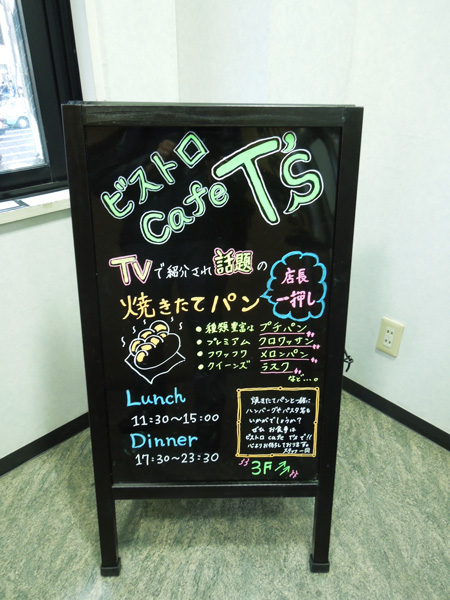 ビストロ
Cafe T's
TVで紹介され話題の
店長
一押し
焼きたてパン
• 種類豊富な プチパン
• プレミアム クロワッサン
• フワッフワ メロンパン
• クイーンズ ラスク
など…。
Lunch
11:30~15:00
Dinner
17:30~23:30
焼きたてパンと一緒に
ハンバーグやパスタ等も
いかがでしょうか?
ぜひ お食事は
ビストロ cafe T'sで!!
心よりお待ちしております。
スタッフ一同
3F